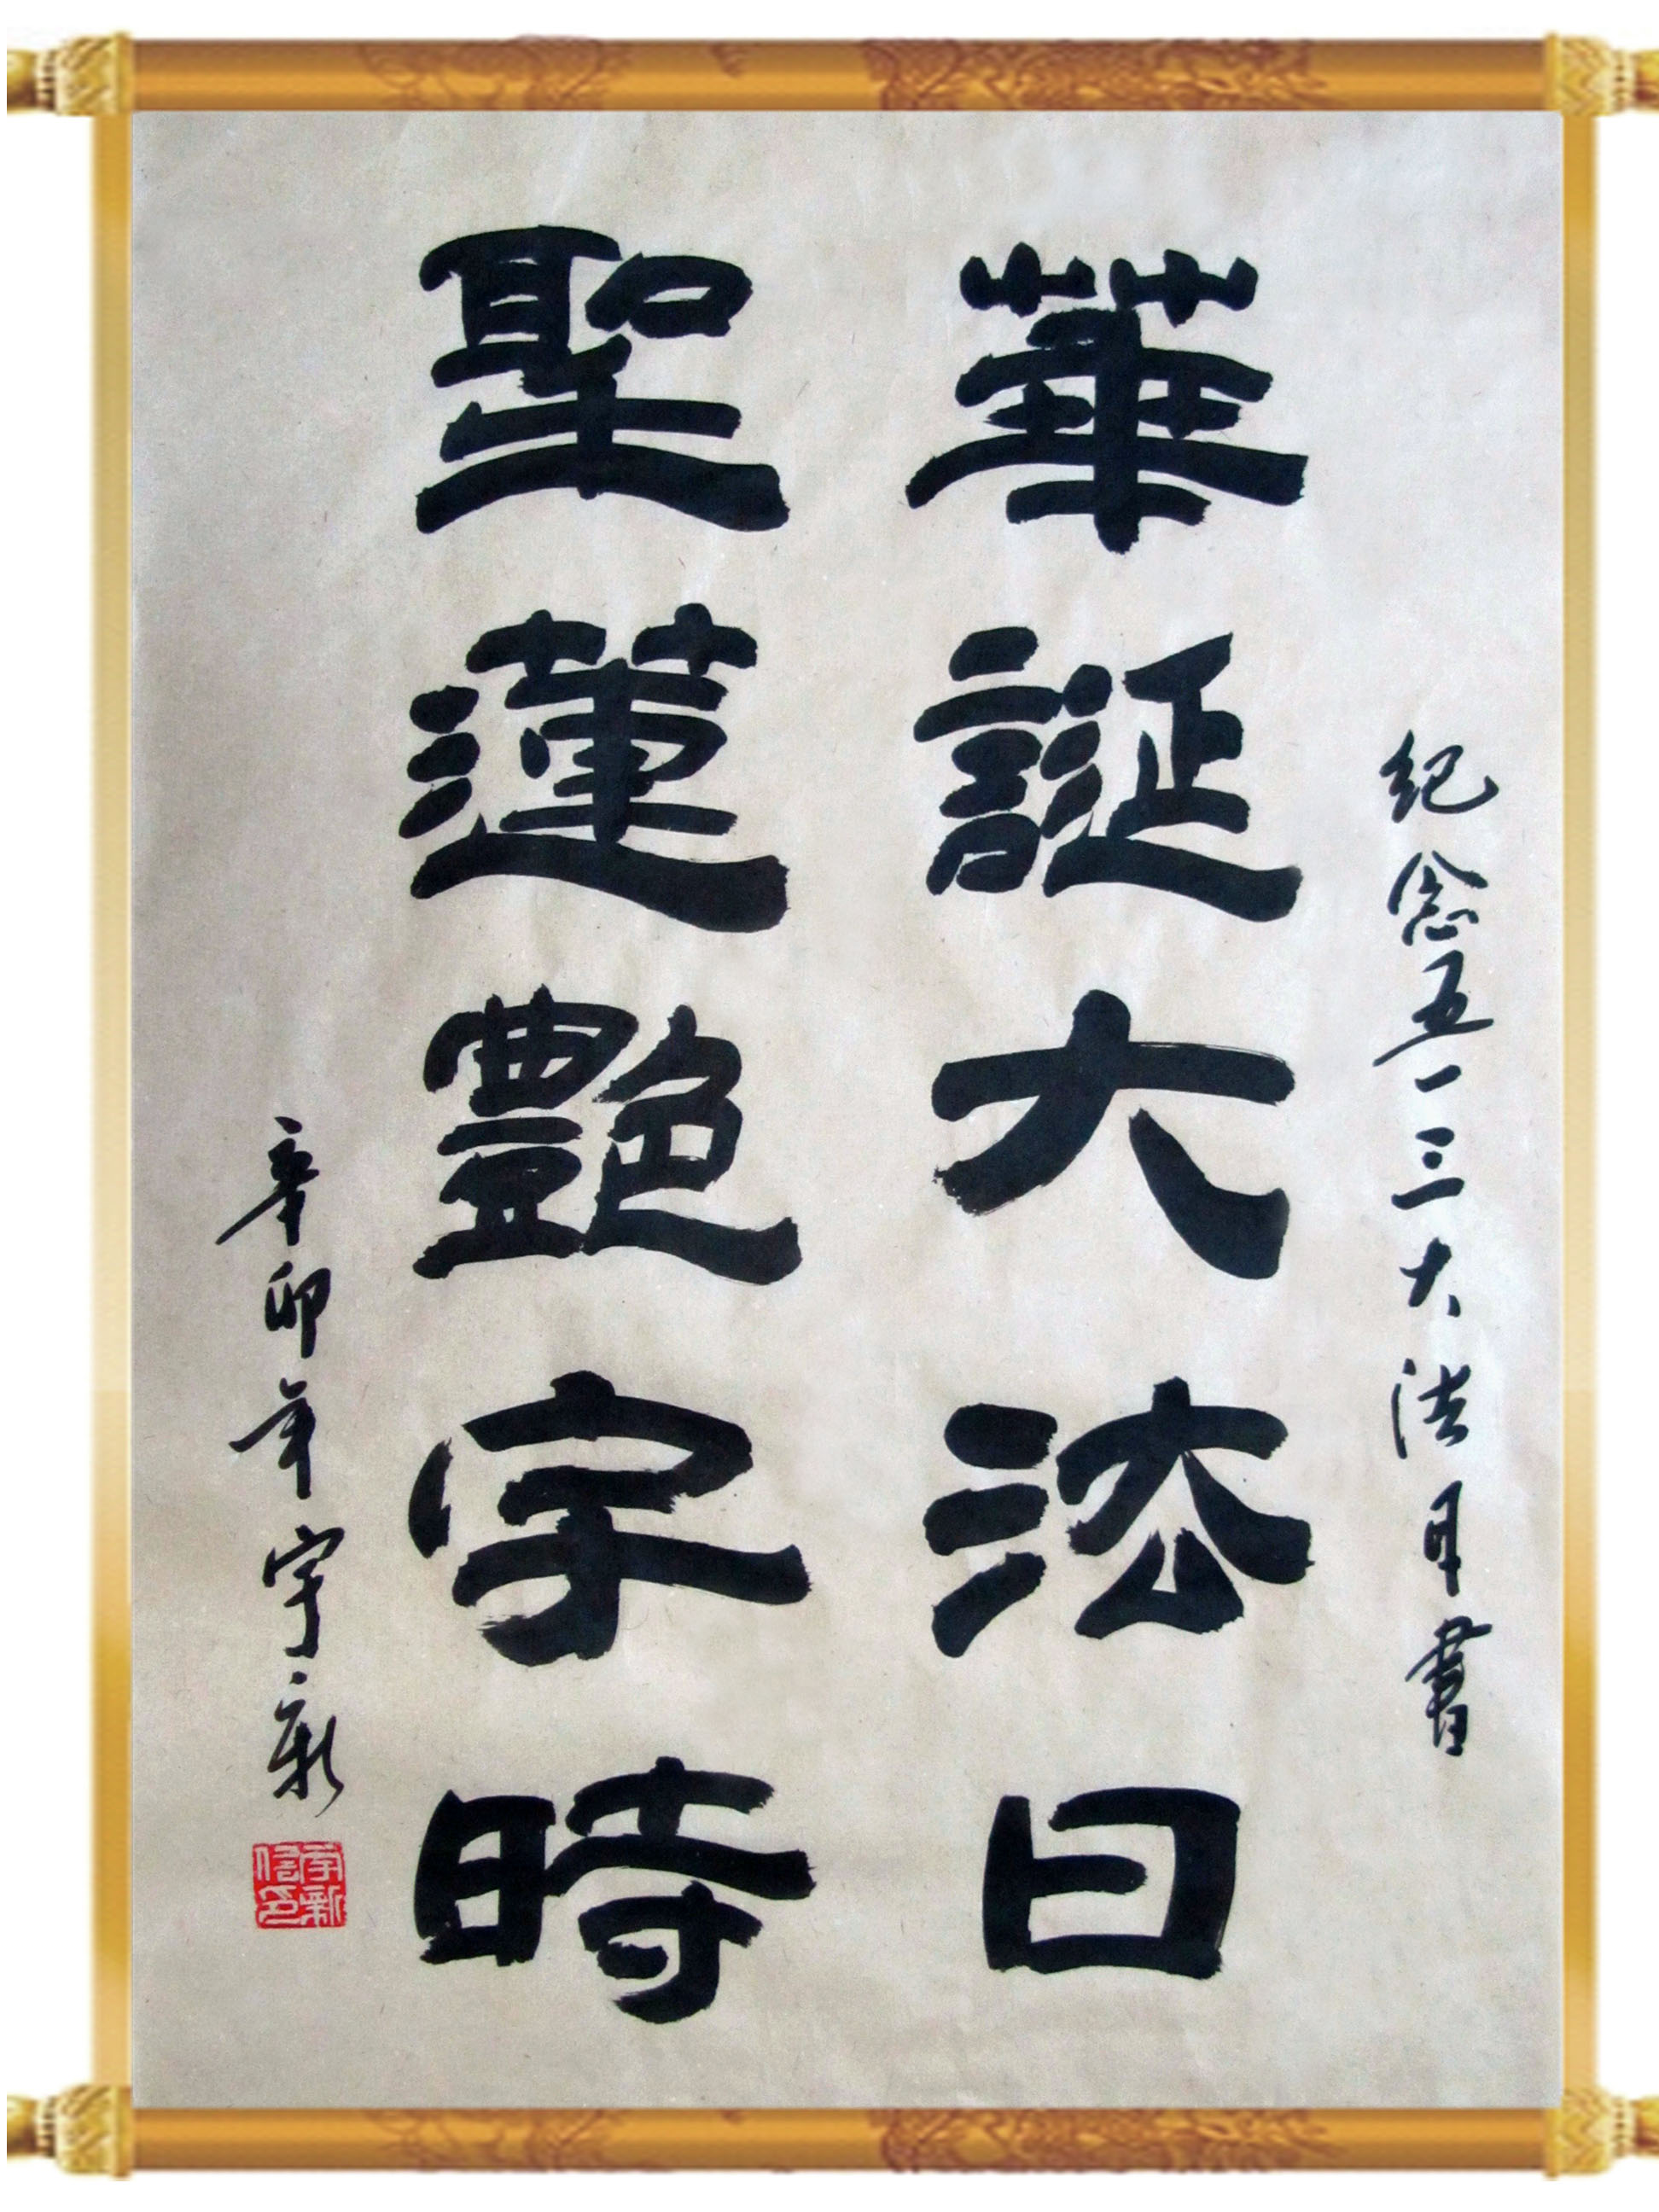 纪念五一三大法日書
華誕大法日
聖蓮艷宇時
辛卯年宇新
宇新
信印